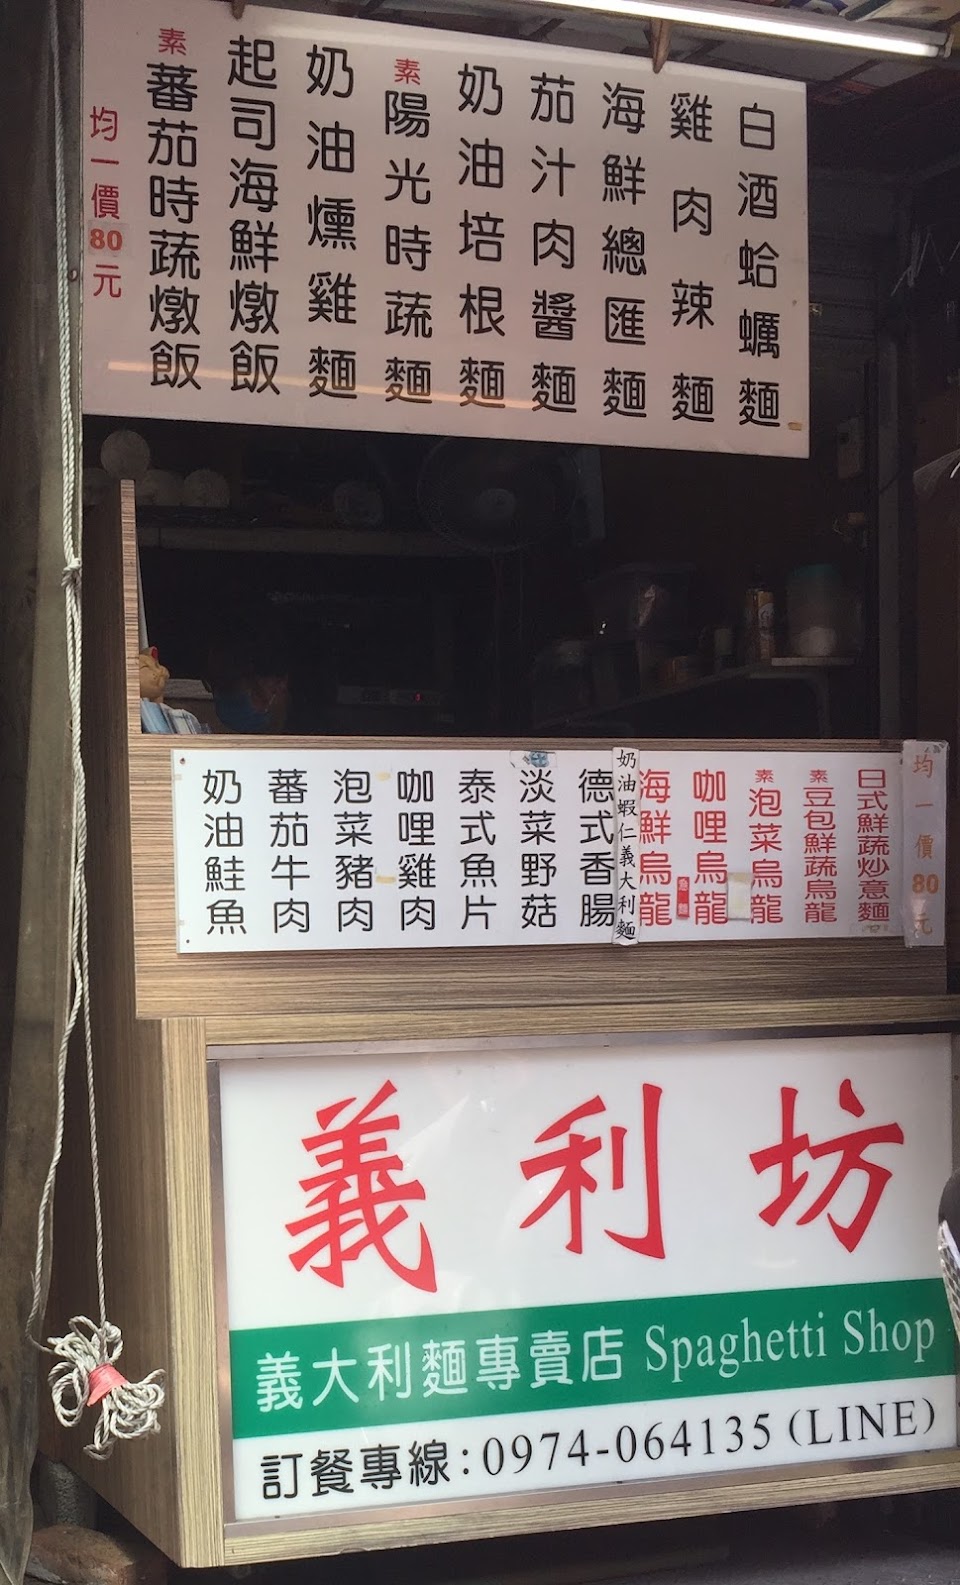 白酒蛤蠣麵
雞肉辣麵
海鮮總匯麵
茄汁肉醬麵
奶油培根麵
素陽光時蔬麵
奶油燻雞麵
起司海鮮燉飯
素蕃茄時蔬燉飯
均一價80元
奶油鮭魚
蕃茄牛肉
泡菜豬肉
咖哩雞肉
泰式魚片
淡菜野菇
德式香腸
奶油蝦仁義大利麵
海鮮烏龍
咖哩烏龍
素泡菜烏龍
素豆包鮮蔬烏龍
日式鮮蔬炒意麵
均一價80元
義利坊
義大利麵專賣店 Spaghetti Shop
訂餐專線：0974-064135（LINE）